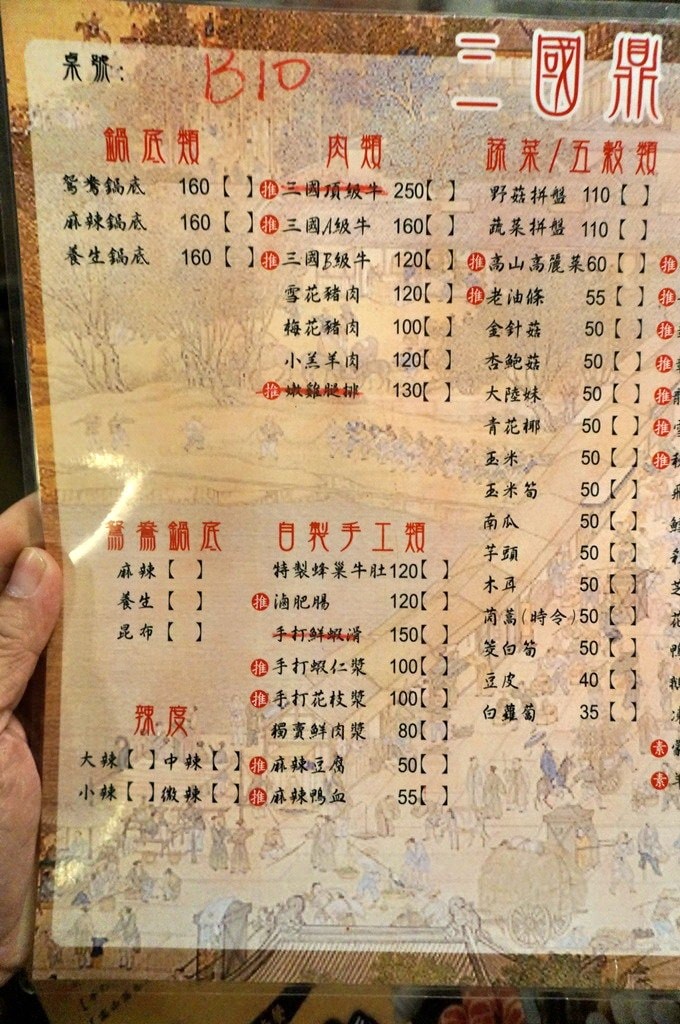 桌號: B10
三國鼎
鍋底類
鴛鴦鍋底 160【 】
麻辣鍋底 160【 】
養生鍋底 160【 】
肉類
推 三國頂級牛 250【 】
推 三國A級牛 160【 】
推 三國B級牛 120【 】
雪花豬肉 120【 】
梅花豬肉 100【 】
小羔羊肉 120【 】
推 嫩雞腿排 130【 】
蔬菜/五穀類
野菇拼盤 110【 】
蔬菜拼盤 110【 】
推 高山高麗菜 60【 】
推 老油條 55【 】
金針菇 50【 】
杏鮑菇 50【 】
大陸妹 50【 】
青花椰 50【 】
玉米 50【 】
玉米筍 50【 】
南瓜 50【 】
芋頭 50【 】
木耳 50【 】
茼蒿(時令) 50【 】
筊白筍 50【 】
豆皮 40【 】
白蘿蔔 35【 】
推
推
推
推
推
推
推
素
素
鴛鴦鍋底
麻辣【 】
養生【 】
昆布【 】
辣度
大辣【 】中辣【 】
小辣【 】微辣【 】
自製手工類
特製蜂巢牛肚 120【 】
推 滷肥腸 120【 】
手打鮮蝦滑 150【 】
推 手打蝦仁漿 100【 】
推 手打花枝漿 100【 】
獨賣鮮肉漿 80【 】
推 麻辣豆腐 50【 】
推 麻辣鴨血 55【 】